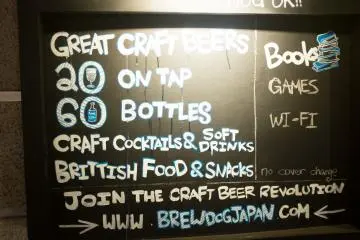 OK!!
GREAT CRAFT BEERS
20 ON TAP
60 BOTTLES
CRAFT COCKTAILS & SOFT DRINKS
BRITTISH FOOD & SNACKS
Books
GAMES
WI-FI
no cover charge
JOIN THE CRAFT BEER REVOLUTION
→ WWW BREWDOGJAPAN COM ←